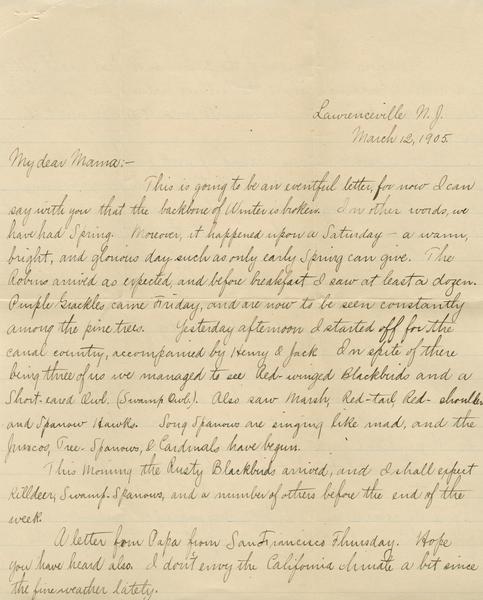 Lawrenceville N.J.
March 12, 1905.
My dear Mama:-
This is going to be an eventful letter, for now I can
say with you that the backbone of Winter is broken. In other words, we
have had Spring. Moreover, it happened upon a Saturday - a warm,
bright, and glorious day such as only early Spring can give. The
Robins arrived as expected, and before breakfast I saw at least a dozen.
Purple Grackles came Friday, and are now to be seen constantly
among the pine trees. Yesterday afternoon I started off for the
canal country, accompanied by Henry & Jack. In spite of there
being three of us we managed to see Red-winged Blackbirds and a
Short-eared Owl. (Swamp Owl). Also saw Marsh, Red-tail, Red-shoulder
and Sparrow Hawks. Song Sparrows are singing like mad, and the
Juncos, Tree-Sparrows, & Cardinals have begun.
This Morning the Rusty Blackbirds arrived, and I shall expect
Killdeer, Swamp-Sparrows, and a number of others before the end of the
week.
A letter from Papa from San Francisco Thursday. Hope
you have heard also. I don't envy the California climate a bit since
the fine weather lately.